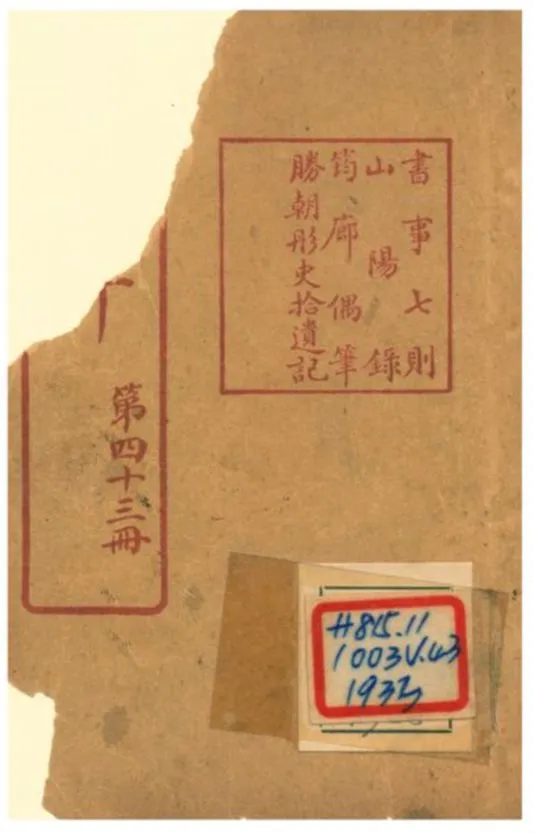 書事七則
山陽錄
筠廊偶筆
勝朝彤史拾遺記
第四十三冊
H815.11
1003V.43
1932